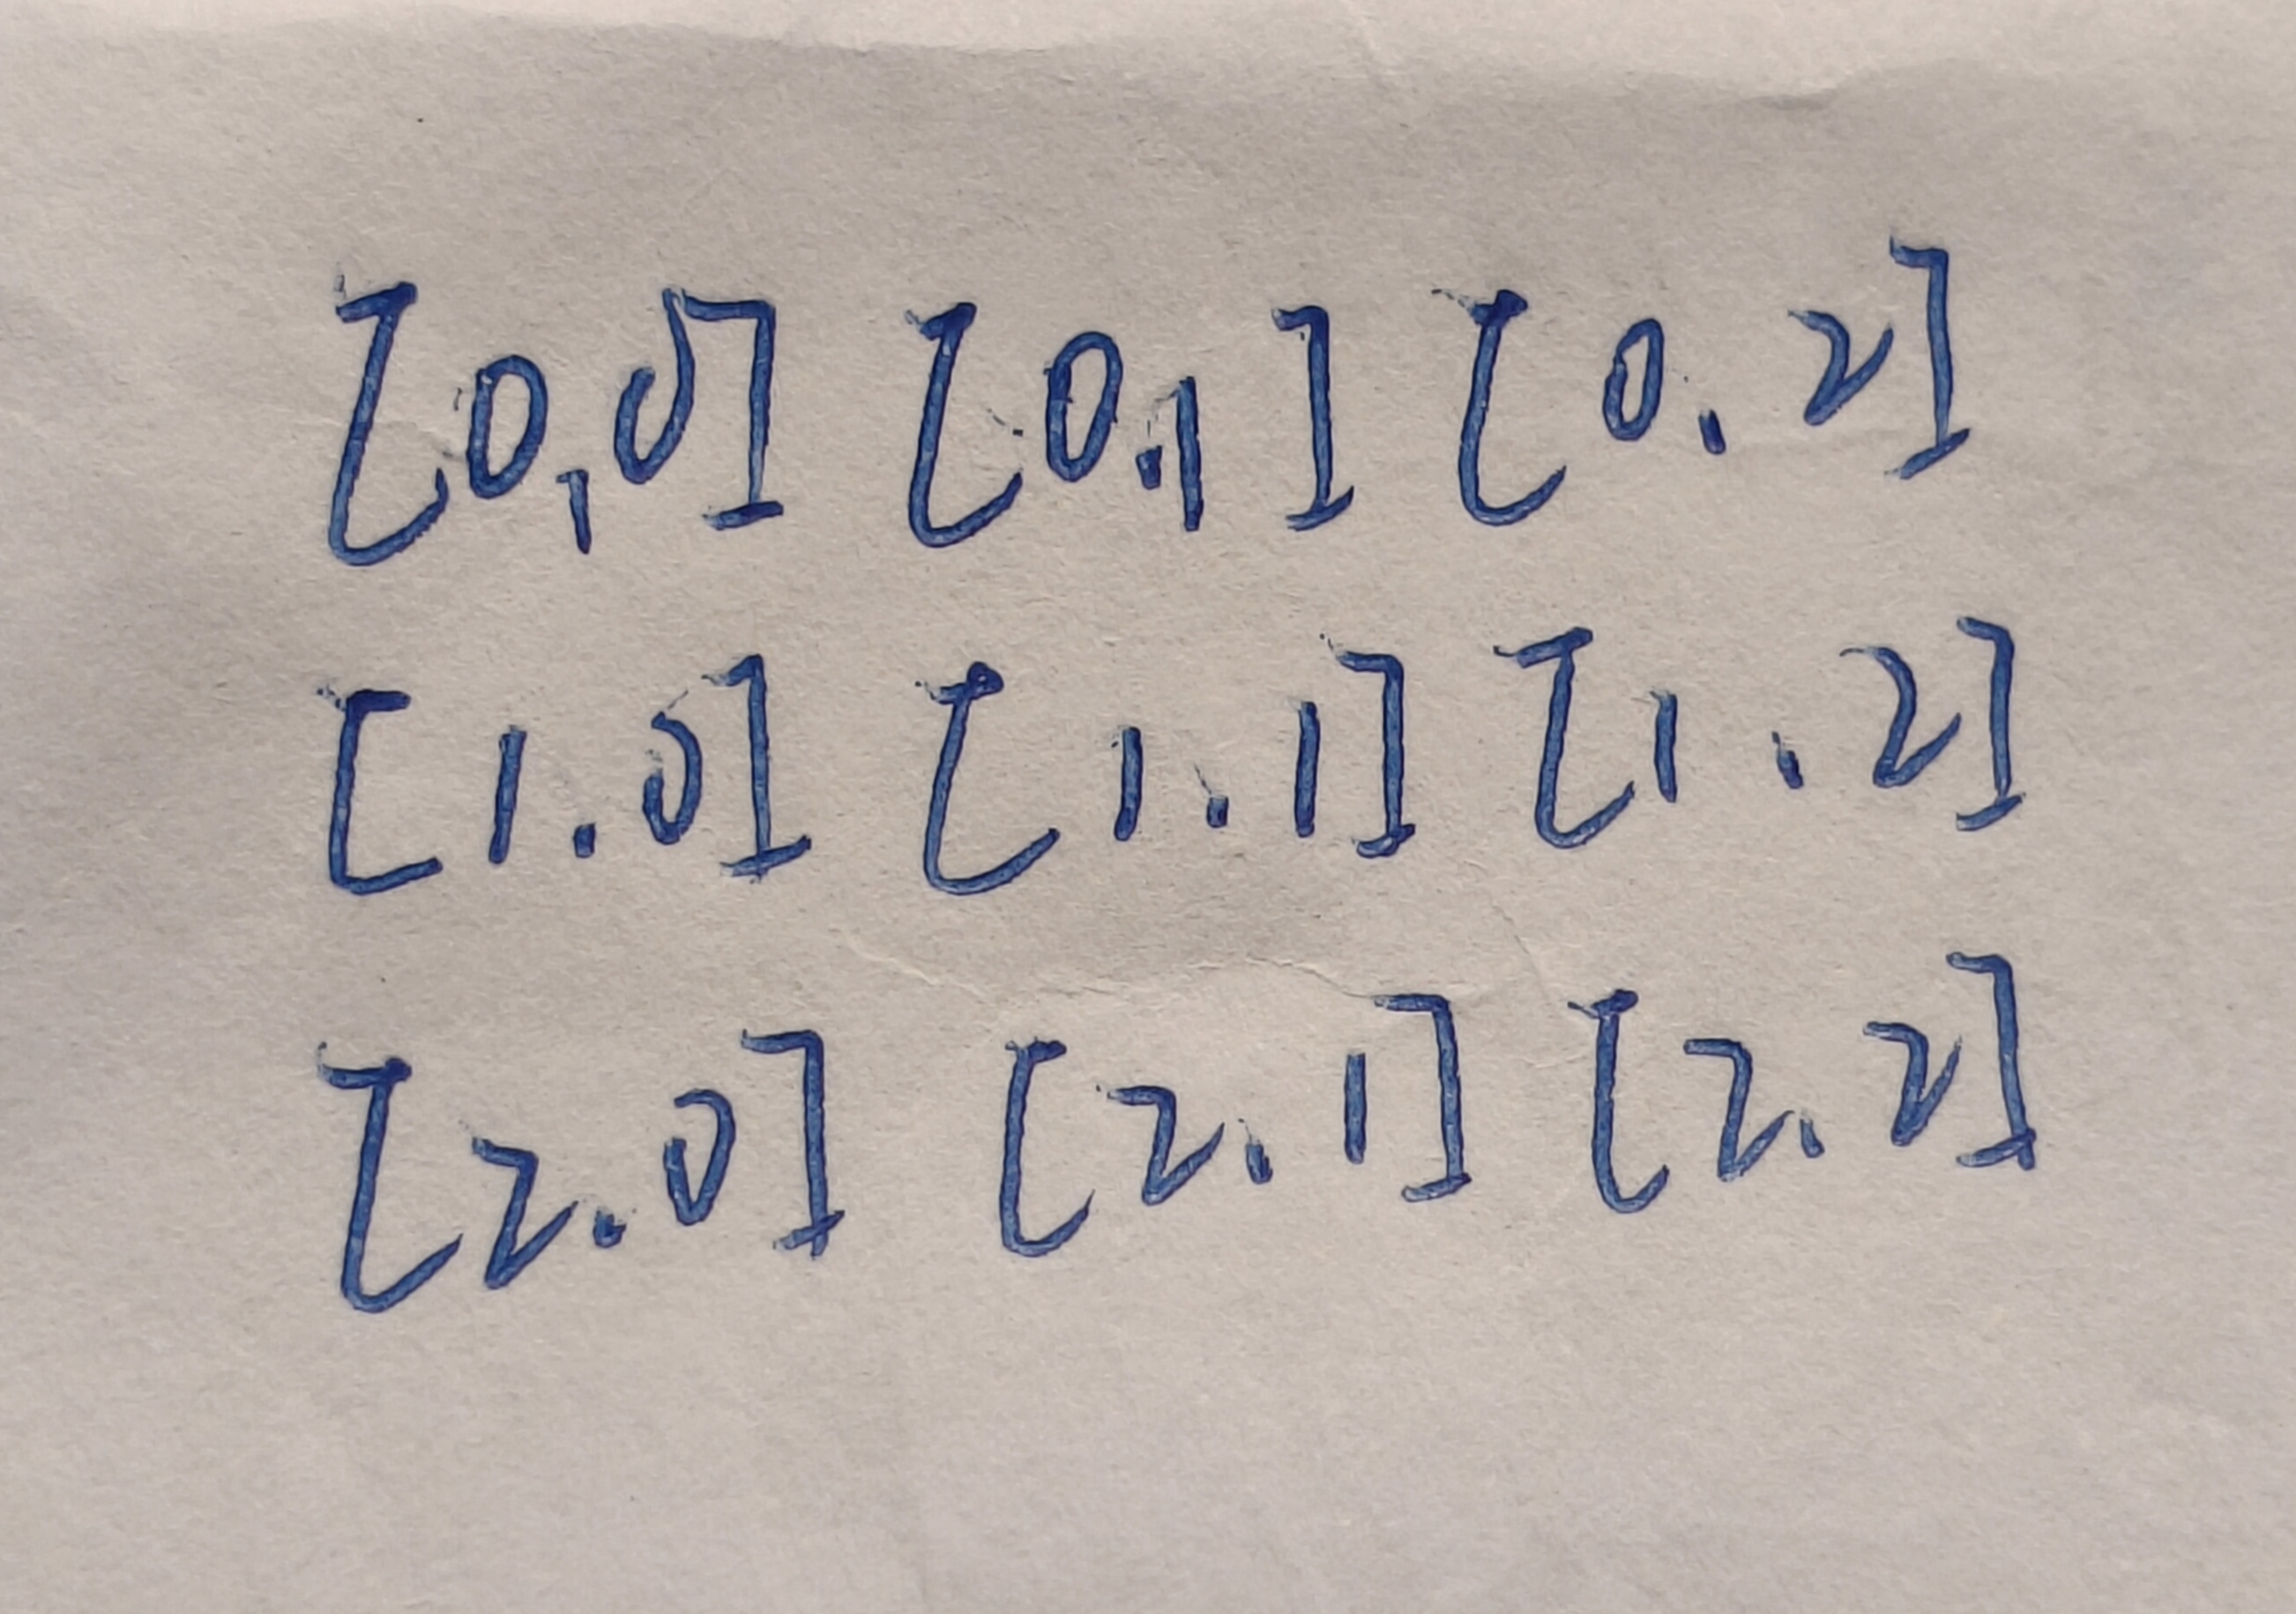 [0,0] [0,1] [0,2]
[1.0] [1.1] [1.2]
[2.0] [2.1] [2.2]